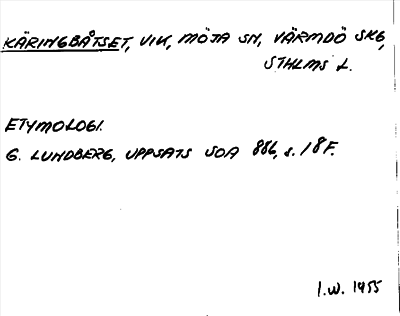 KÄRINGBÅTSET, VIK, MÖJA SN, VÄRMDÖ SKG,
STHLMS L.
ETYMOLOGI.
G. LUNDBERG, UPPSATS SOA 886, s. 18 F.
I.W. 1955